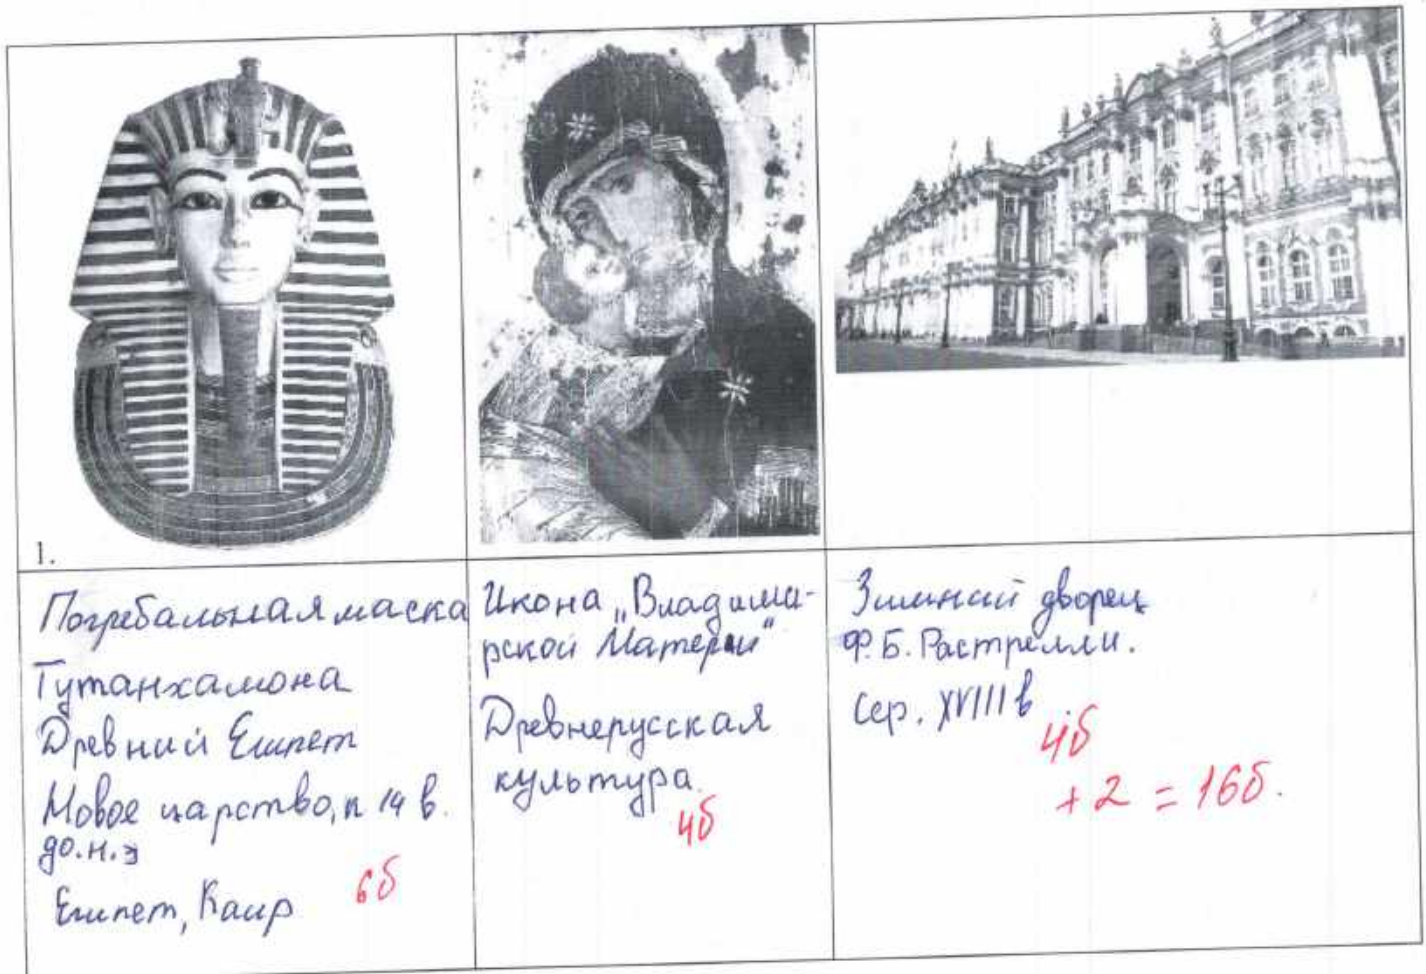 1.
Погребальная маска
Тутанхамона
Древний Египет
Новое царство, п 14 в.
до.н.э
Египет, Каир
6б
Икона „Владими-
рской Матери"
Древнерусская
культура.
4б
Зимний дворец
Ф.Б. Растрелли.
Сер. XVIII в
4б
+ 2 = 16б.